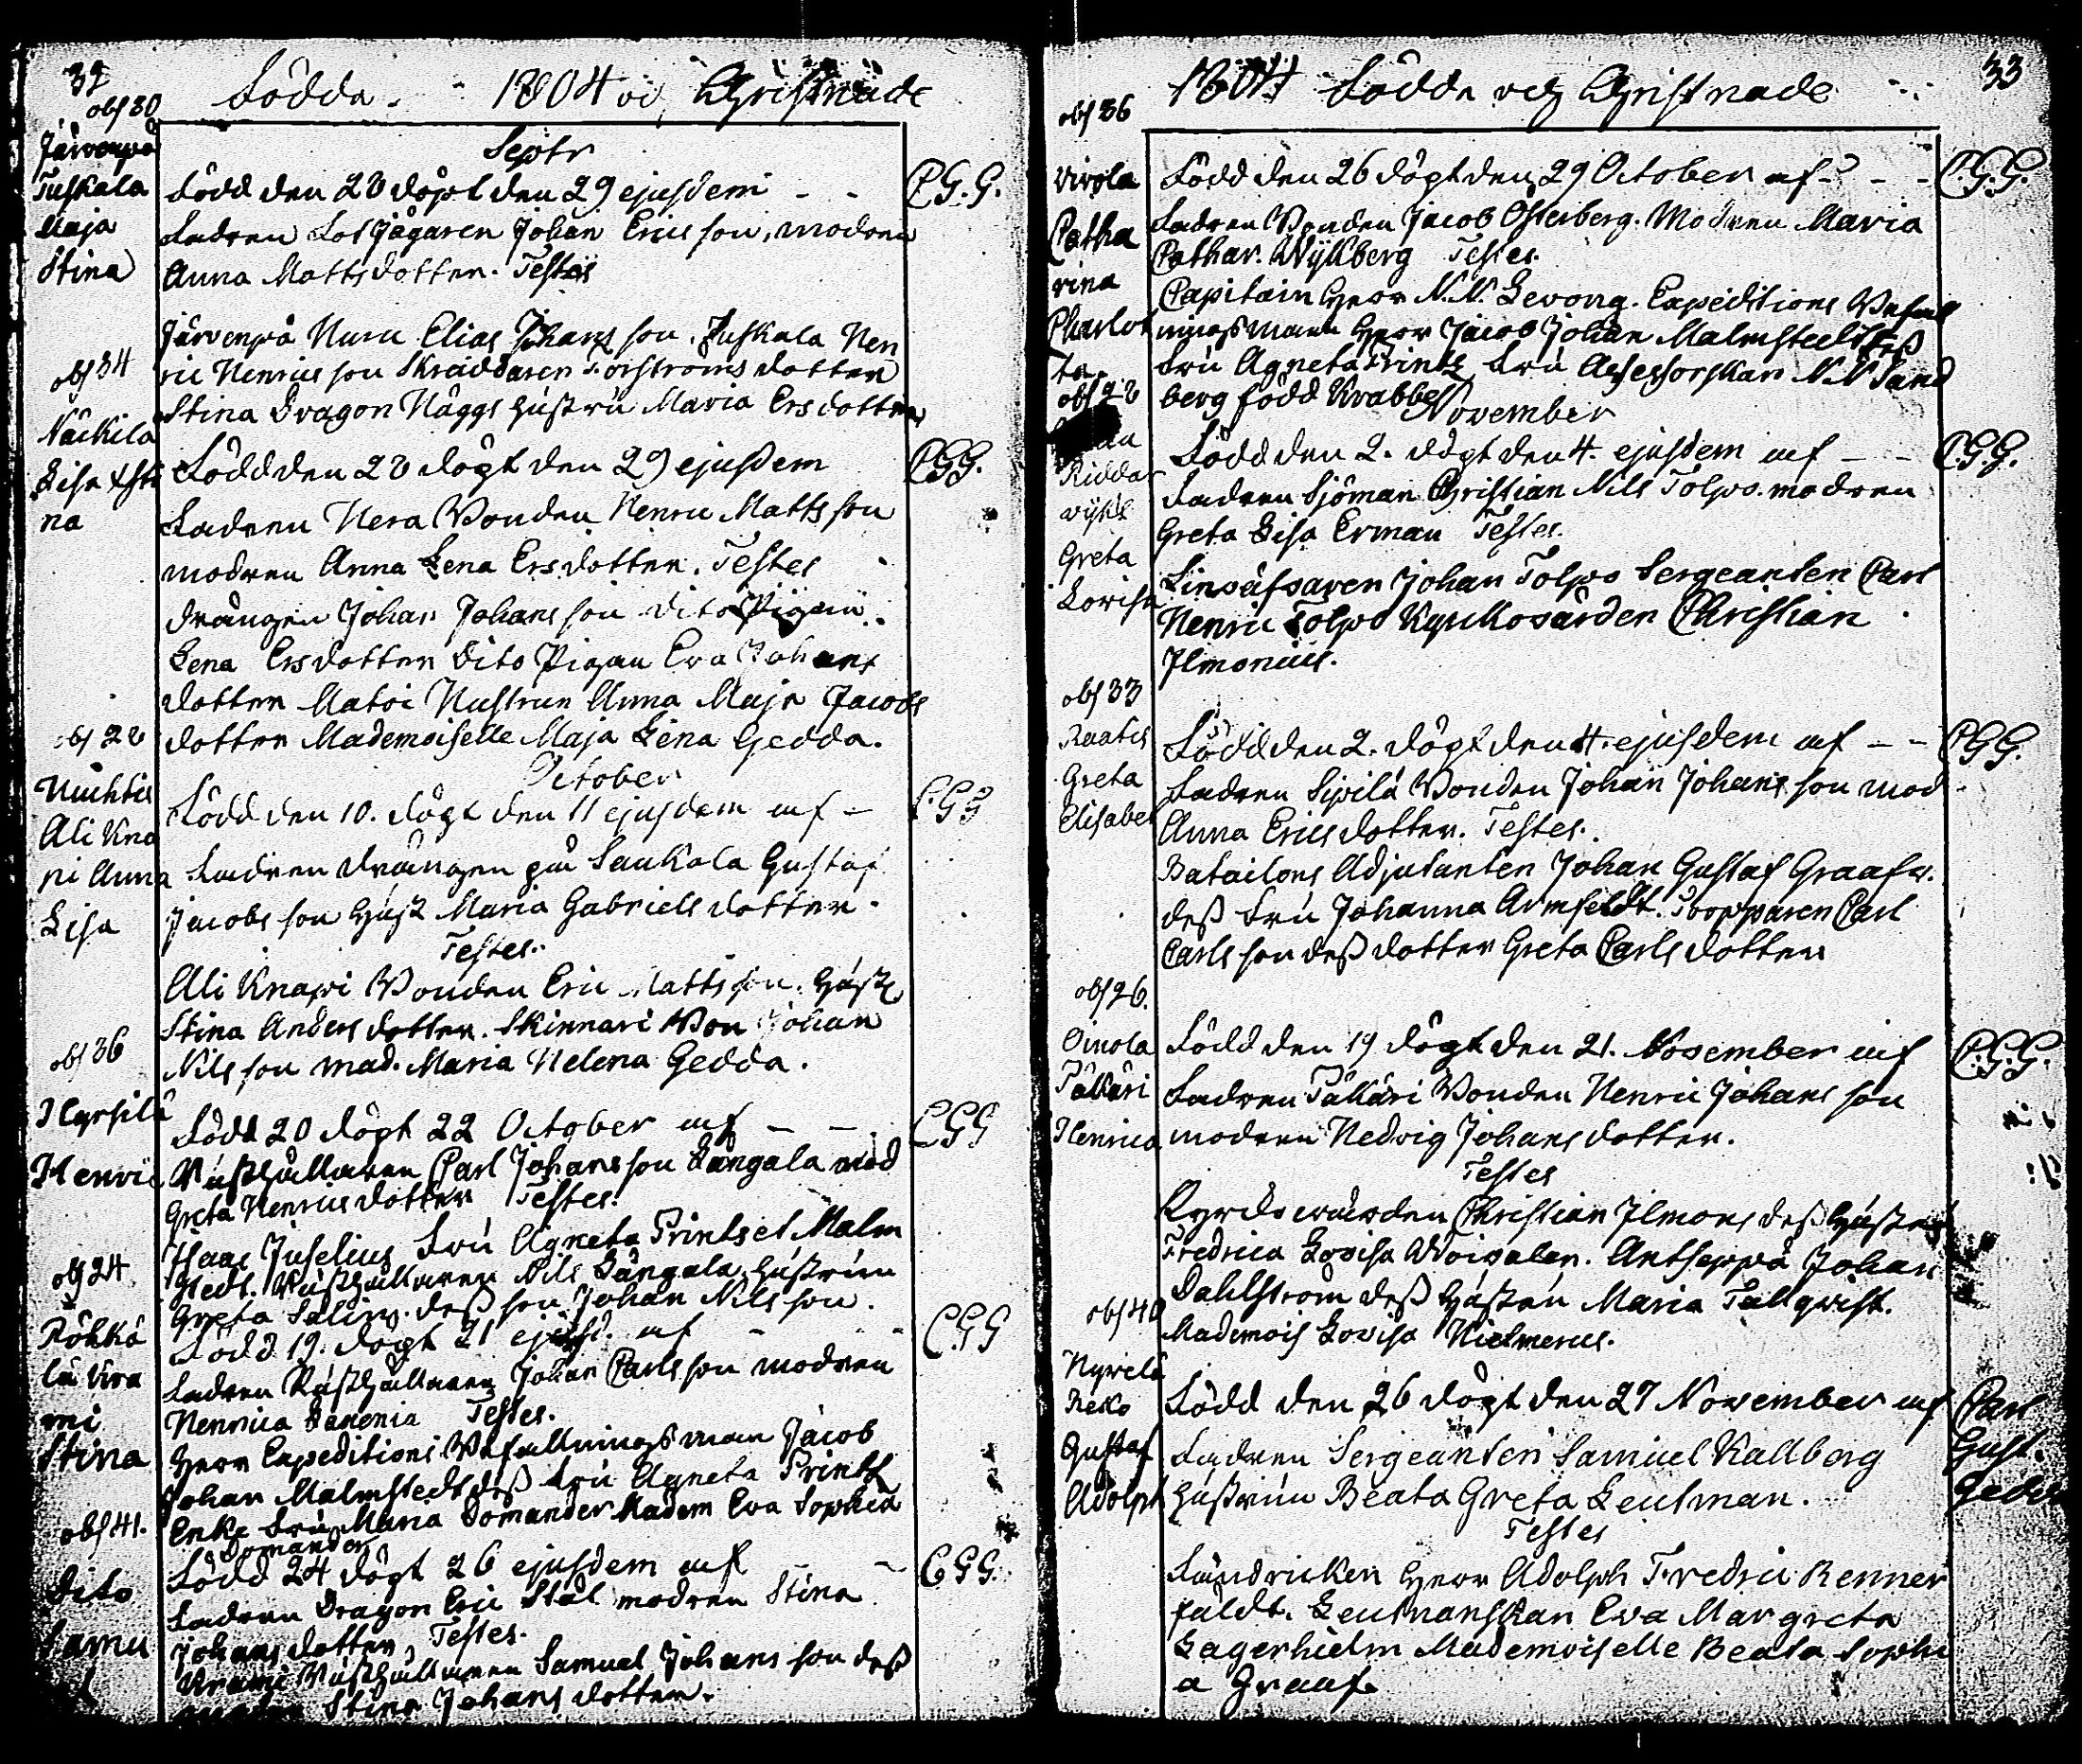 32
Födde - 1804 oc Christnade
obs 30
Septr
Järvenpä
Juskala
Maja
Stina
Född den 28 döpt den 29 ejusdem - - C.G.G.
Fadren Los Jägaren Johan Ericsson, modren
Anna Mattsdotter. Testes
Järvenpä Huru Elias Johansson. Juskala Hen
ric Henricsson Skräddaren Forströms dotter
Stina Dragon Häggs hustru Maria Ersdotter
obs 34
Näckilä
Lisa Xsti
na
Född den 28 dögt den 29 ejusdem CGG.
Fadren Hera Bonden Henric Mattsson
modren Anna Lena Ersdotter. Testes
drängen Johan Johansson dito Pigan
Lena Ersdotter dito Pigan Eva Johans
dotter Matoi Hustrun Anna Maja Jacobs
dotter Mademoiselle Maja Lena Gedda.
October
obs 28
Huhtis
Ali Kna
pi Anna
Lisa
Född den 10. dögt den 11 ejusdem af - C.G.G
Fadren drängen på Saukola Gustaf
Jacobsson Hust Maria Gabrielsdotter.
Testes.
Ali Knapi Bonden Eric Mattsson. Hust
Stina Andersdotter. Skinnari Bon Johan
Nilsson mad. Maria Helena Gedda.
obs 36
Hyrsilä
Henric
Född 20 dögt 22 October af - - CGG
Rusthållaren Carl Johansson Längala mod
Greta Henricsdotter Testes.
Isaac Juselius Fru Agneta Prints et Malm
stedt. Rusthållaren Nils Längala, hustrun
Greta Salin. dess son Johan Nilsson.
obs 24
Röhkö
lä Kra
mi
Stina
Född 19. dögt 21 ejusd. af - - C.G.G
Fadren Rusthållaren Johan Carlsson modren
Henrica Testes.
Herr Expeditions Befallningsman Jacob
Johan Malmstedt dess Fru Agneta Prints
Enke Fru Maria Domander Madem Eva Sophia
Domander
obs 41.
Dito
Samu
el
Född 24 dögt 26 ejusdem af - CGG.
Fadren Dragon Eric Stål modren Stina
Johansdotter, Testes.
Krami Rusthållaren Samuel Johansson dess
Stina Johansdotter.
1804 Födde och Christnade 33
obs 36
Virola
Catha
rina
Charlot
ta.
Född den 26 dögt den 29 October af - - C.G.G.
Fadren Bonden Jacob Österberg. Modren Maria
Cathar. Wijkberg Testes.
Capitain Herr N.N. Levong. Expeditions Befall
ningsman Herr Jacob Johan Malmstedt dess
Fru Agneta Prints, Fru Assessorskan N.N Sand
berg född Krabbe
November
obs 28
Ridda
wijk
Greta
Lovisa
Född den 2. dögt den 4. ejusdem af - - C.G.G.
Fadren Sjöman Christian Nils Tolpo. modren
Greta Lisa Erman Testes.
Linväfvaren Johan Tolpo Sergeanten Carl
Henric Tolpo Kyrckovärden Christian
Ilmonius.
obs 33
Raatis
Greta
Elisabet
Född den 2. dögt den 4. ejusdem af - - CGG.
Fadren Sipilä Bonden Johan Johansson mod
Anna Ericsdotter. Testes.
Batailons Adjutanten Johan Gustaf Graaf.
dess Fru Johanna Armfeldt. Carl
Carlsson dess dotter Greta Carlsdotter
obs 26.
Oinola
Päkäri
Henrica
Född den 19 dögt den 21. November af C.G.G.
Fadren Päkäri Bonden Henric Johansson
modren Hedvig Johansdotter.
Testes
Kyrckovärden Christian Ilmoni dess Hustru
Fredrica Lovisa Woivalen. Antseppä Johan
Dahlström dess Hustru Maria Tallqvist.
Mademois Lovisa Hielmerus.
obs 40
Nyrelä
Heko
Gustaf
Adolph
Född den 26 dögt den 27 November af Carl
Fadren Sergeanten Samuel Kallberg Gust.
hustrun Beata Greta Leutman. Gedda
Testes
Fändricken Herr Adolph Fredric Renner
faldt. Leutnanskan Eva Margreta
Lagerhielm Mademoiselle Beata Sophi
a Graaf.